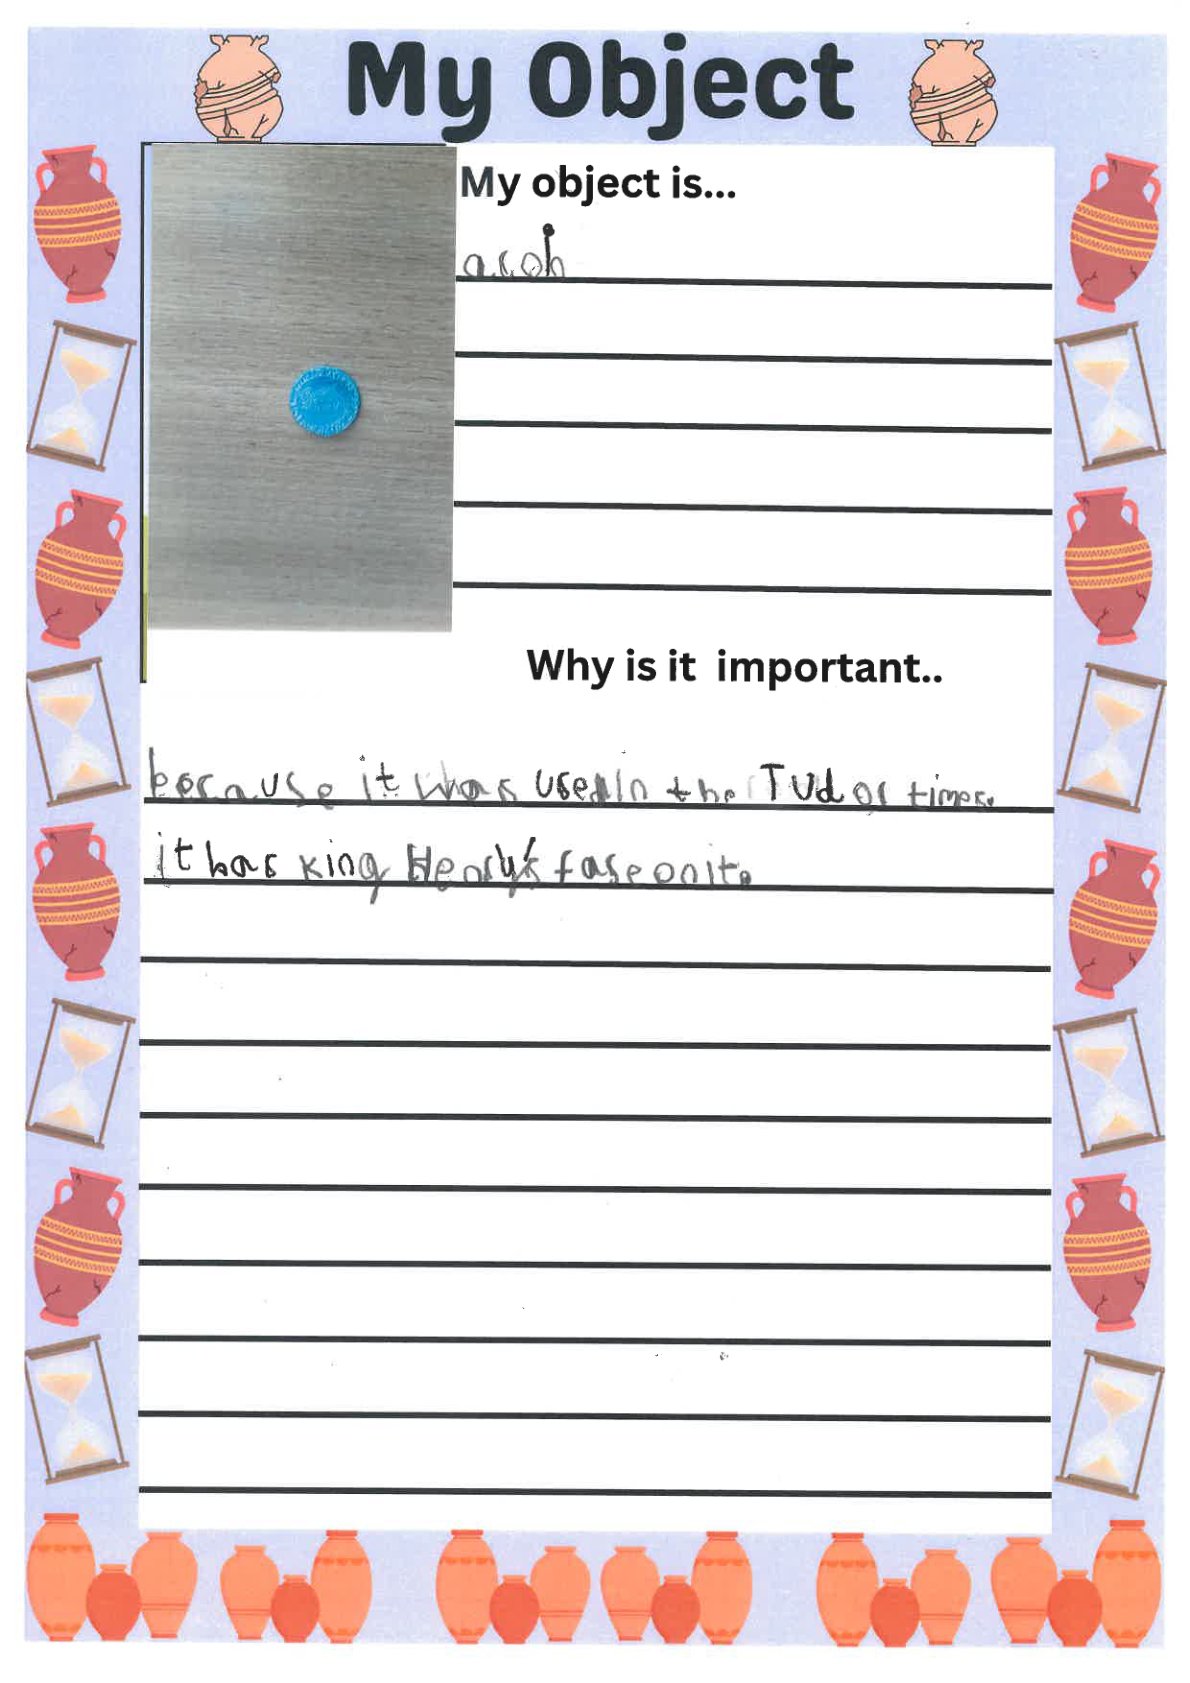 My Object
My object is...
a coin
Why is it important..
because it was used in the Tudor times.
it has king Henry's fase on it.